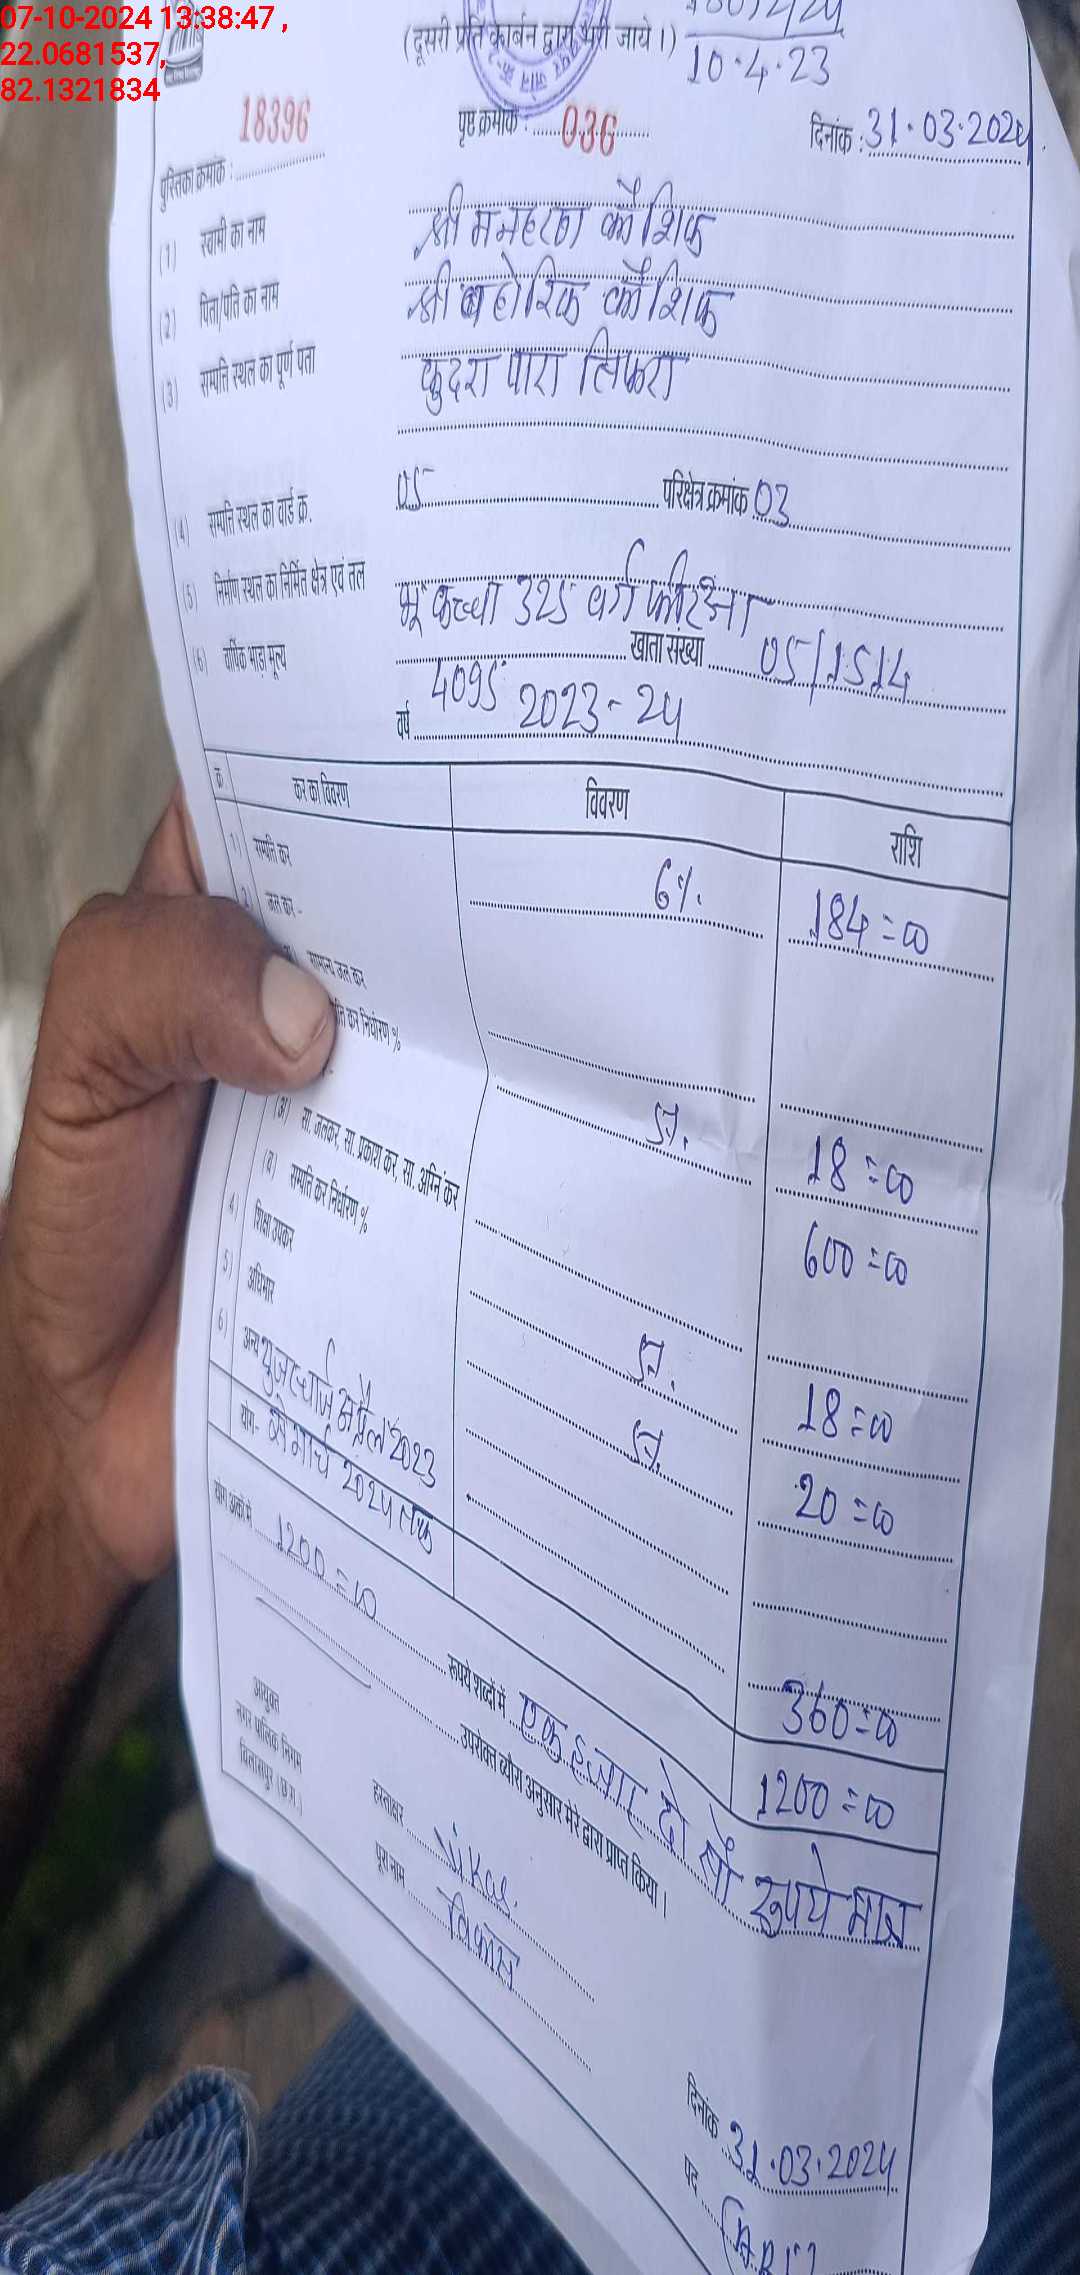 07-10-2024 13:38:47 ,
22.0681537,
82.1321834
(दूसरी प्रति कार्बन द्वारा भरी जाये ।)
10.4.23
पुस्तिका क्रमांक : 18396 पृष्ठ क्रमांक : 036 दिनांक : 31.03.2024
(1) स्वामी का नाम श्री मनहरण कौशिक
(2) पिता/पति का नाम श्री बहोरिक कौशिक
(3) सम्पत्ति स्थल का पूर्ण पता कुदरा पारा तिफरा
(4) सम्पत्ति स्थल का वार्ड क्र. 05 परिक्षेत्र क्रमांक 03
(5) निर्माण स्थल का निर्मित क्षेत्र एवं तल भू कच्चा 325 वर्ग फीट
(6) वार्षिक भाड़ा मूल्य 4095 खाता संख्या 05/1514
वर्ष 2023-24
क्र. कर का विवरण विवरण राशि
1) सम्पत्ति कर 6%. 184=00
2) जल कर -
सामान्य जल कर
कर निर्धारण %
18=00
(अ) सा. जलकर, सा. प्रकाश कर, सा. अग्नि कर 600=00
(ब) सम्पत्ति कर निर्धारण %
4) शिक्षा उपकर 18=00
5) अधिभार 20=00
6) अन्य यूजर चार्ज अप्रैल 2023
से मार्च 2024 तक 360=00
योग- 1200=00
योग अंको में 1200=00 रूपये शब्दों में एक हजार दो सौ रूपये मात्र
उपरोक्त ब्यौरा अनुसार मेरे द्वारा प्राप्त किया ।
आयुक्त
नगर पालिक निगम
बिलासपुर (छ.ग.)
हस्ताक्षर Vikas
पूरा नाम विकास
दिनांक 31.03.2024
पद